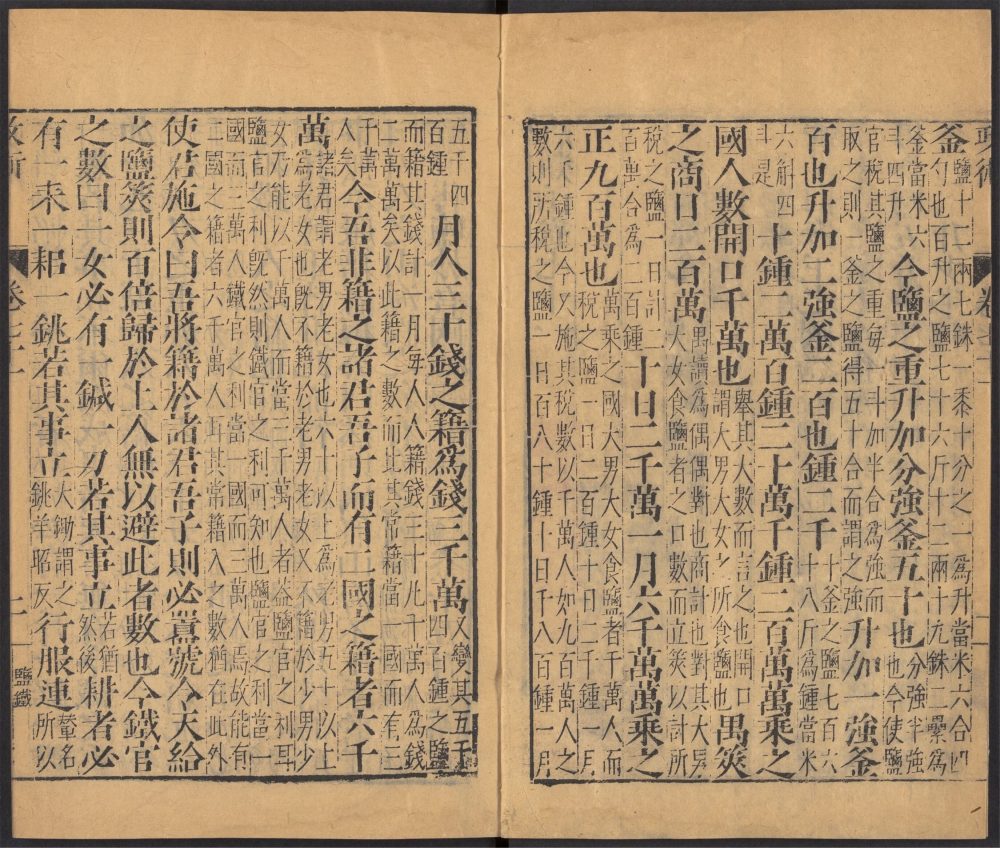 釜鹽十二兩七銖一黍十分之一為升當米六合四
勺也百升之鹽七十六斤十二兩十九銖二纍為
釜當米六
斗四升今鹽之重升加分強釜五十也分強半強
也今使鹽
官稅其鹽之重每一斗加半合為強而
取之則一釜之鹽得五十合而謂之強升加一強釜
百也升加二強釜二百也鍾二千十釜之鹽七百六
十八斤為鍾當米
六斛四
斗是十鍾二萬百鍾二十萬千鍾二百萬萬乘之
國人數開口千萬也舉其大數而言之也開口
謂大男大女之所食鹽也禺筴
之商日二百萬禺讀為偶偶對也商計也對其大男
大女食鹽者之口數而立筴以計所
稅之鹽一日計二
百萬合為二百鍾十日二千萬一月六千萬萬乘之
正九百萬也萬乘之國大男大女食鹽者千萬人而
稅之鹽一日二百鍾十日二千鍾一月
六千鍾也今又施其稅數以千萬人如九百萬人之
數則所稅之鹽一日百八十鍾十日千八百鍾一月
五千四
百鍾月人三十錢之籍為錢三千萬又變其五千
四百鍾之鹽
而籍其錢計一月每人籍錢三十凡千萬人為錢
三萬萬矣以此籍之數而比其常籍當一國而有三
千萬
人矣今吾非籍之諸君吾子而有二國之籍者六千
萬諸君謂老男老女也六十以上為老男五十以上
為老女也既不籍於老男老女又不籍於少男少
女乃能以千萬人而當三千萬人者蓋鹽官之利耳
鹽官之利既然則鐵官之利可知也鹽官之利當一
國而三萬人鐵官之利當一國而三萬人焉故能有
二國之籍者六千萬人耳其常籍人之數猶在此外
使君施令曰吾將籍於諸君吾子則必囂號今夫給
之鹽筴則百倍歸於上人無以避此者數也今鐵官
之數曰一女必有一鍼一刀若其事立若猶
然後耕者必
有一耒一耜一銚若其事立大鋤謂之
銚羊昭反行服連輦名
所以
卷
鹽鐵